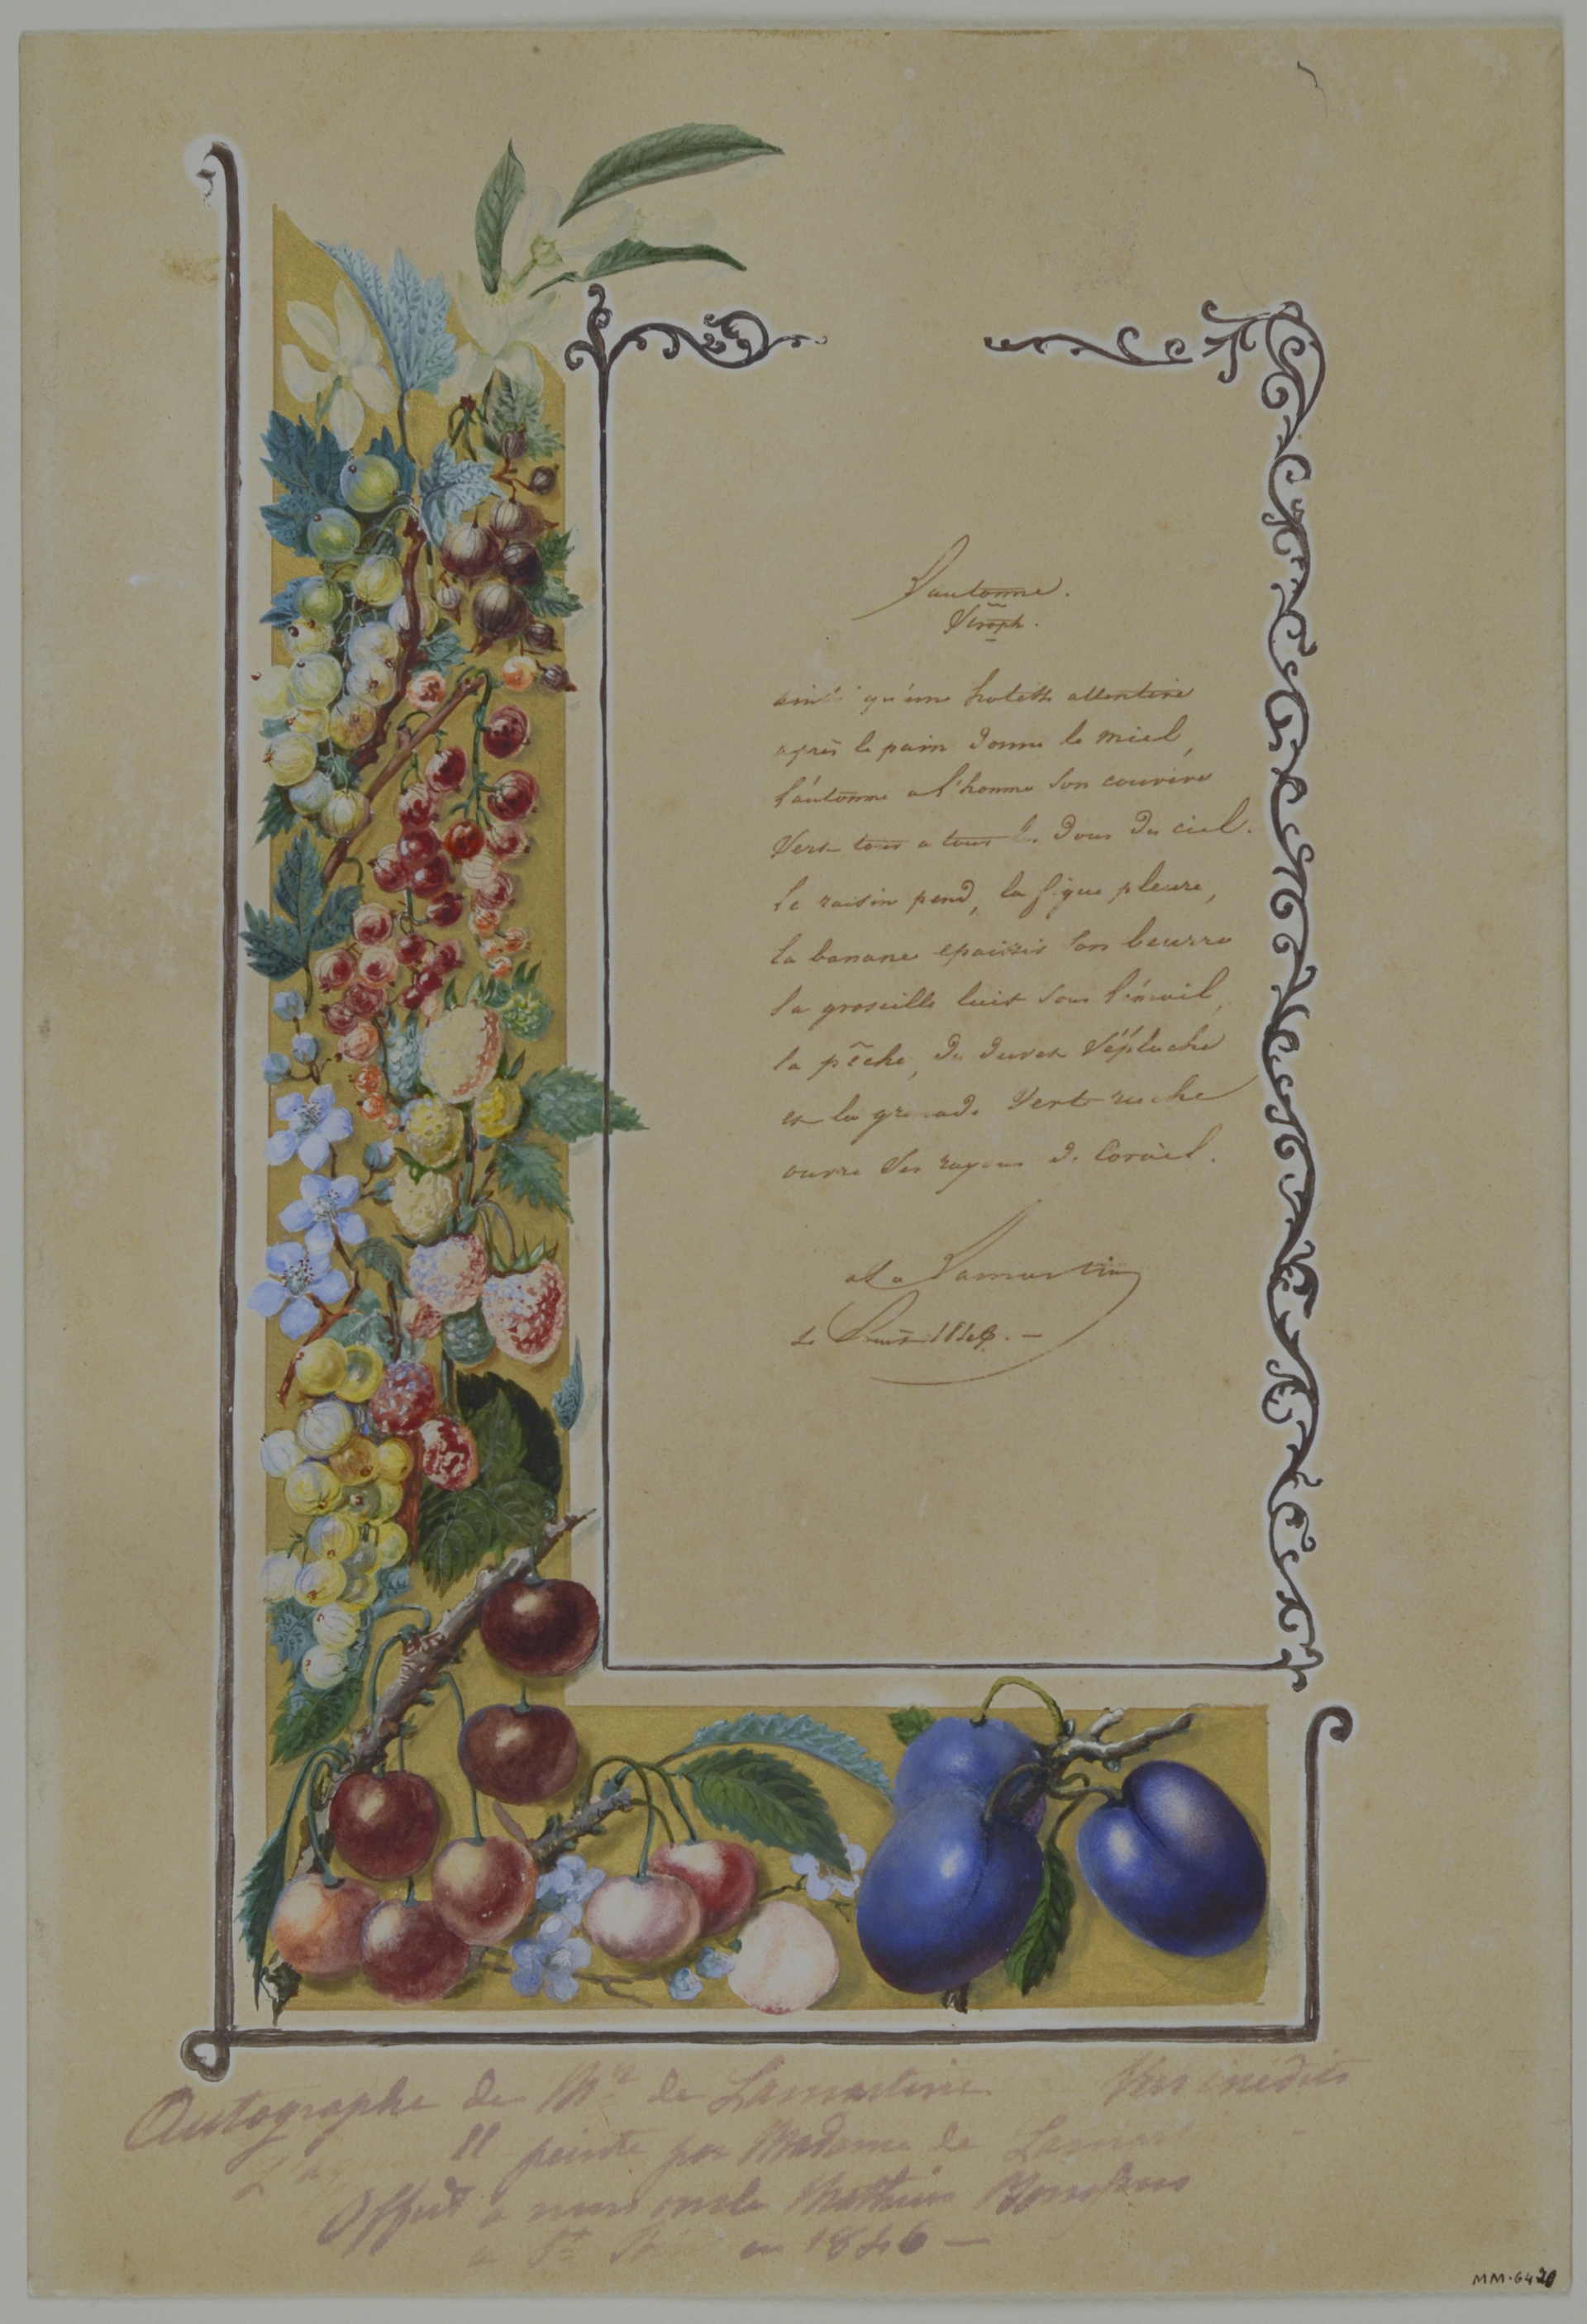 L'automne.
Stroph.
ainsi qu'une hotesse attentive
après le pain donne le miel,
l'automne a l'homme son convive
Verse tous a tous les dons du ciel.
le raisin pend, la figue pleure,
la banane epaissit son beurre
la groseille luit sous l'émail,
la pêche, du duvet s'épluche
et la grenade verte ruche
ouvre ses rayons de Corail.
Lamartine
1846. —
Autographe de Mr de Lamartine Vers inédits
peinte par Madame de Lamar
Offert a mon oncle Mathieu
a St en 1846 —
MM.6420